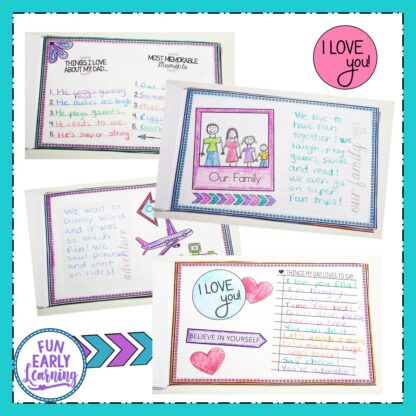 THINGS I LOVE
ABOUT MY DAD...
1. He cooks yummy
food.
2. He makes me laugh
3. He plays games.
4. He reads to me.
5. He's super strong
MOST MEMORABLE
Moments
1. Our
2.
3.
4.
5.
I LOVE
you!
Our Family
We love to
have fun
together! We
laugh, play
games, swim
and read!
We even go
on super
fun trips!
our family
We went to
Disney World
and it was
so much
fun. We
saw princesses
and went
on rides!
adventure
I LOVE
you!
BELIEVE IN YOURSELF
THINGS MY DAD LOVED TO SAY...
I love you
Time for bed!
You can do it
Let's have a
Say cheese
You're adorable
FUN
EARLY
Learning